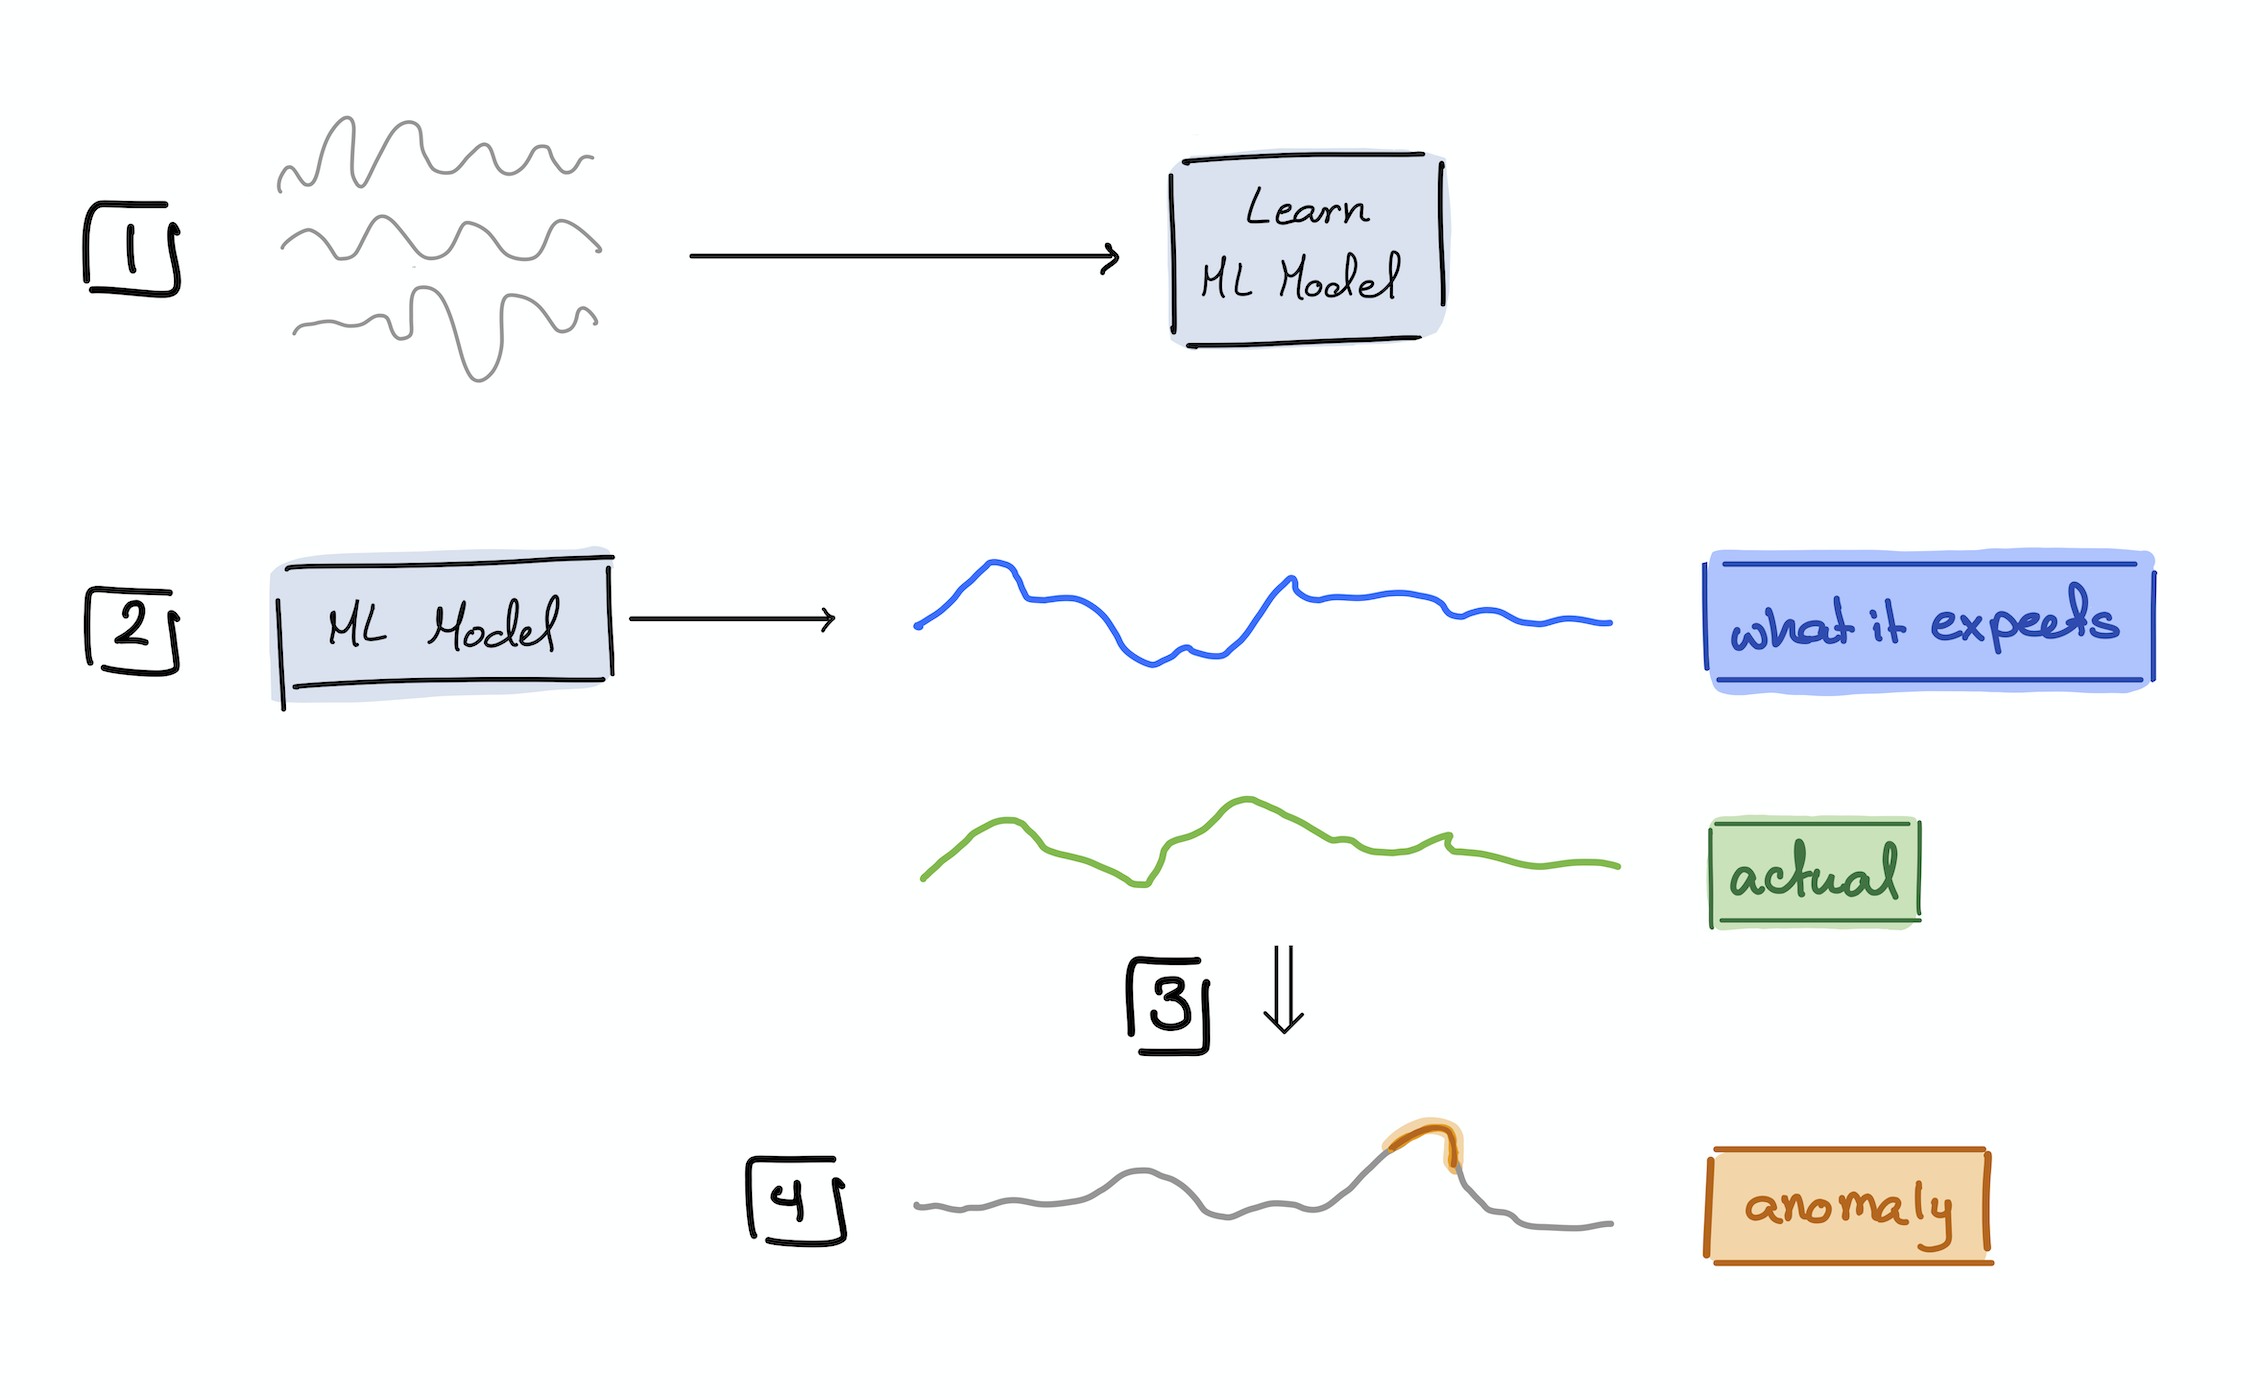 1
Learn
ML Model
2
ML Model
what it expects
actual
3
4
anomaly